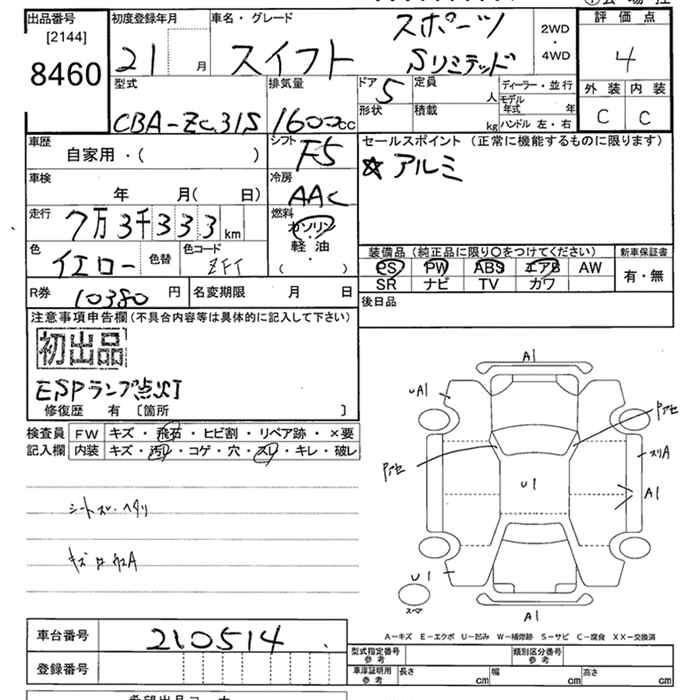 出品番号 [2144] 8460
初度登録年月 21 月
車名・グレード スイフト スポーツ Sリミテッド
2WD・4WD
評価点 4
外装 内装
C C
型式 CBA-ZC31S
排気量 1600cc
ドア 5
形状
定員 人
積載 kg
ディーラー・並行
モデル年式 年
ハンドル 左・右
車歴 自家用・( )
シフト F5
セールスポイント (正常に機能するものに限ります)
☆アルミ
車検 年 月( 日)
冷房 AAC
走行 7万3千333km
燃料 ガソリン・軽油 ( )
色 イエロー 色替
色コード ZFT
装備品(純正品に限り○をつけてください)
PS PW ABS エアB AW
SR ナビ TV カワ
新車保証書
有・無
R券 10380 円
名変期限 月 日
後日品
注意事項申告欄(不具合内容等は具体的に記入して下さい)
初出品
ESPランプ点灯
修復歴 有 [箇所 ]
検査員記入欄
FW キズ・飛石・ヒビ割・リペア跡・×要
内装 キズ・汚レ・コゲ・穴・スレ・キレ・破レ
シートスレ・ヘタリ
A1
uA1
Pアセ
スリA
Pアセ
U1
A1
U1
スペア
A1
A-キズ E-エクボ U-凹み W-補修跡 S-サビ C-腐食 XX-交換済
車台番号 210514
登録番号
型式指定番号 参考
類別区分番号 参考
車庫証明資料 参考 長さ cm 幅 cm 高さ cm